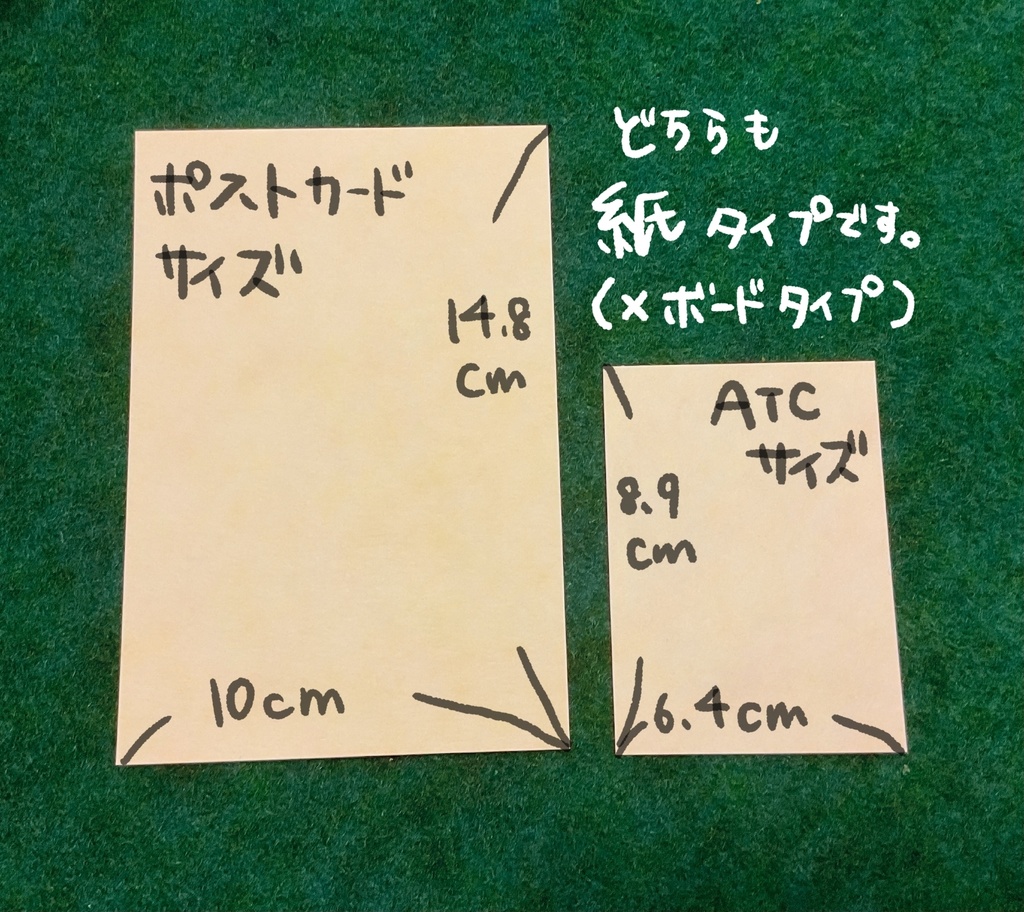 ポストカード
サイズ
14.8
cm
10cm
どちらも
紙タイプです。
(×ボードタイプ)
ATC
サイズ
8.9
cm
6.4cm